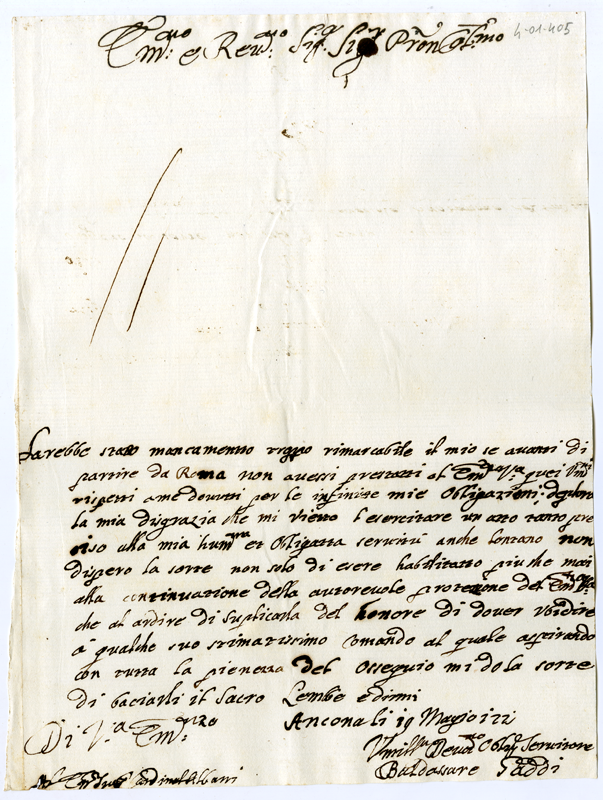 Em.mo e Rev.mo Sig. Sig. Pron Col.mo
4-01-405
Sarebbe stato mancamento troppo rimarcabile il mio se auanti di
partire da Roma non auessi prestatti al Em.za V.ra quei
rispetti ame douuti per le infinite mie Obligazioni: deploro
la mia disgrazia che mi vieta l'esercitare un atto tanto pre
ciso alla mia hum.ma et Obligatta seruitù anche lontano non
dispero la sorte non solo di esere habilitatto piu che mai
alla continuazione della autoreuole protezione del Em.za V.ra
che al ardire di suplicarla del honore di douer vbidire
a qualche suo stimatissimo Comando al quale aspirando
con tutta la pienezza del Ossequio mi do la sorte
di baciarli il Sacro Lembo e dirmi
Di V.a Em.za
Ancona li 19 Magio
Vmiliss.o Deuot.o Obl.o Seruitore
Baldassare Taddi
Cardinal Albani